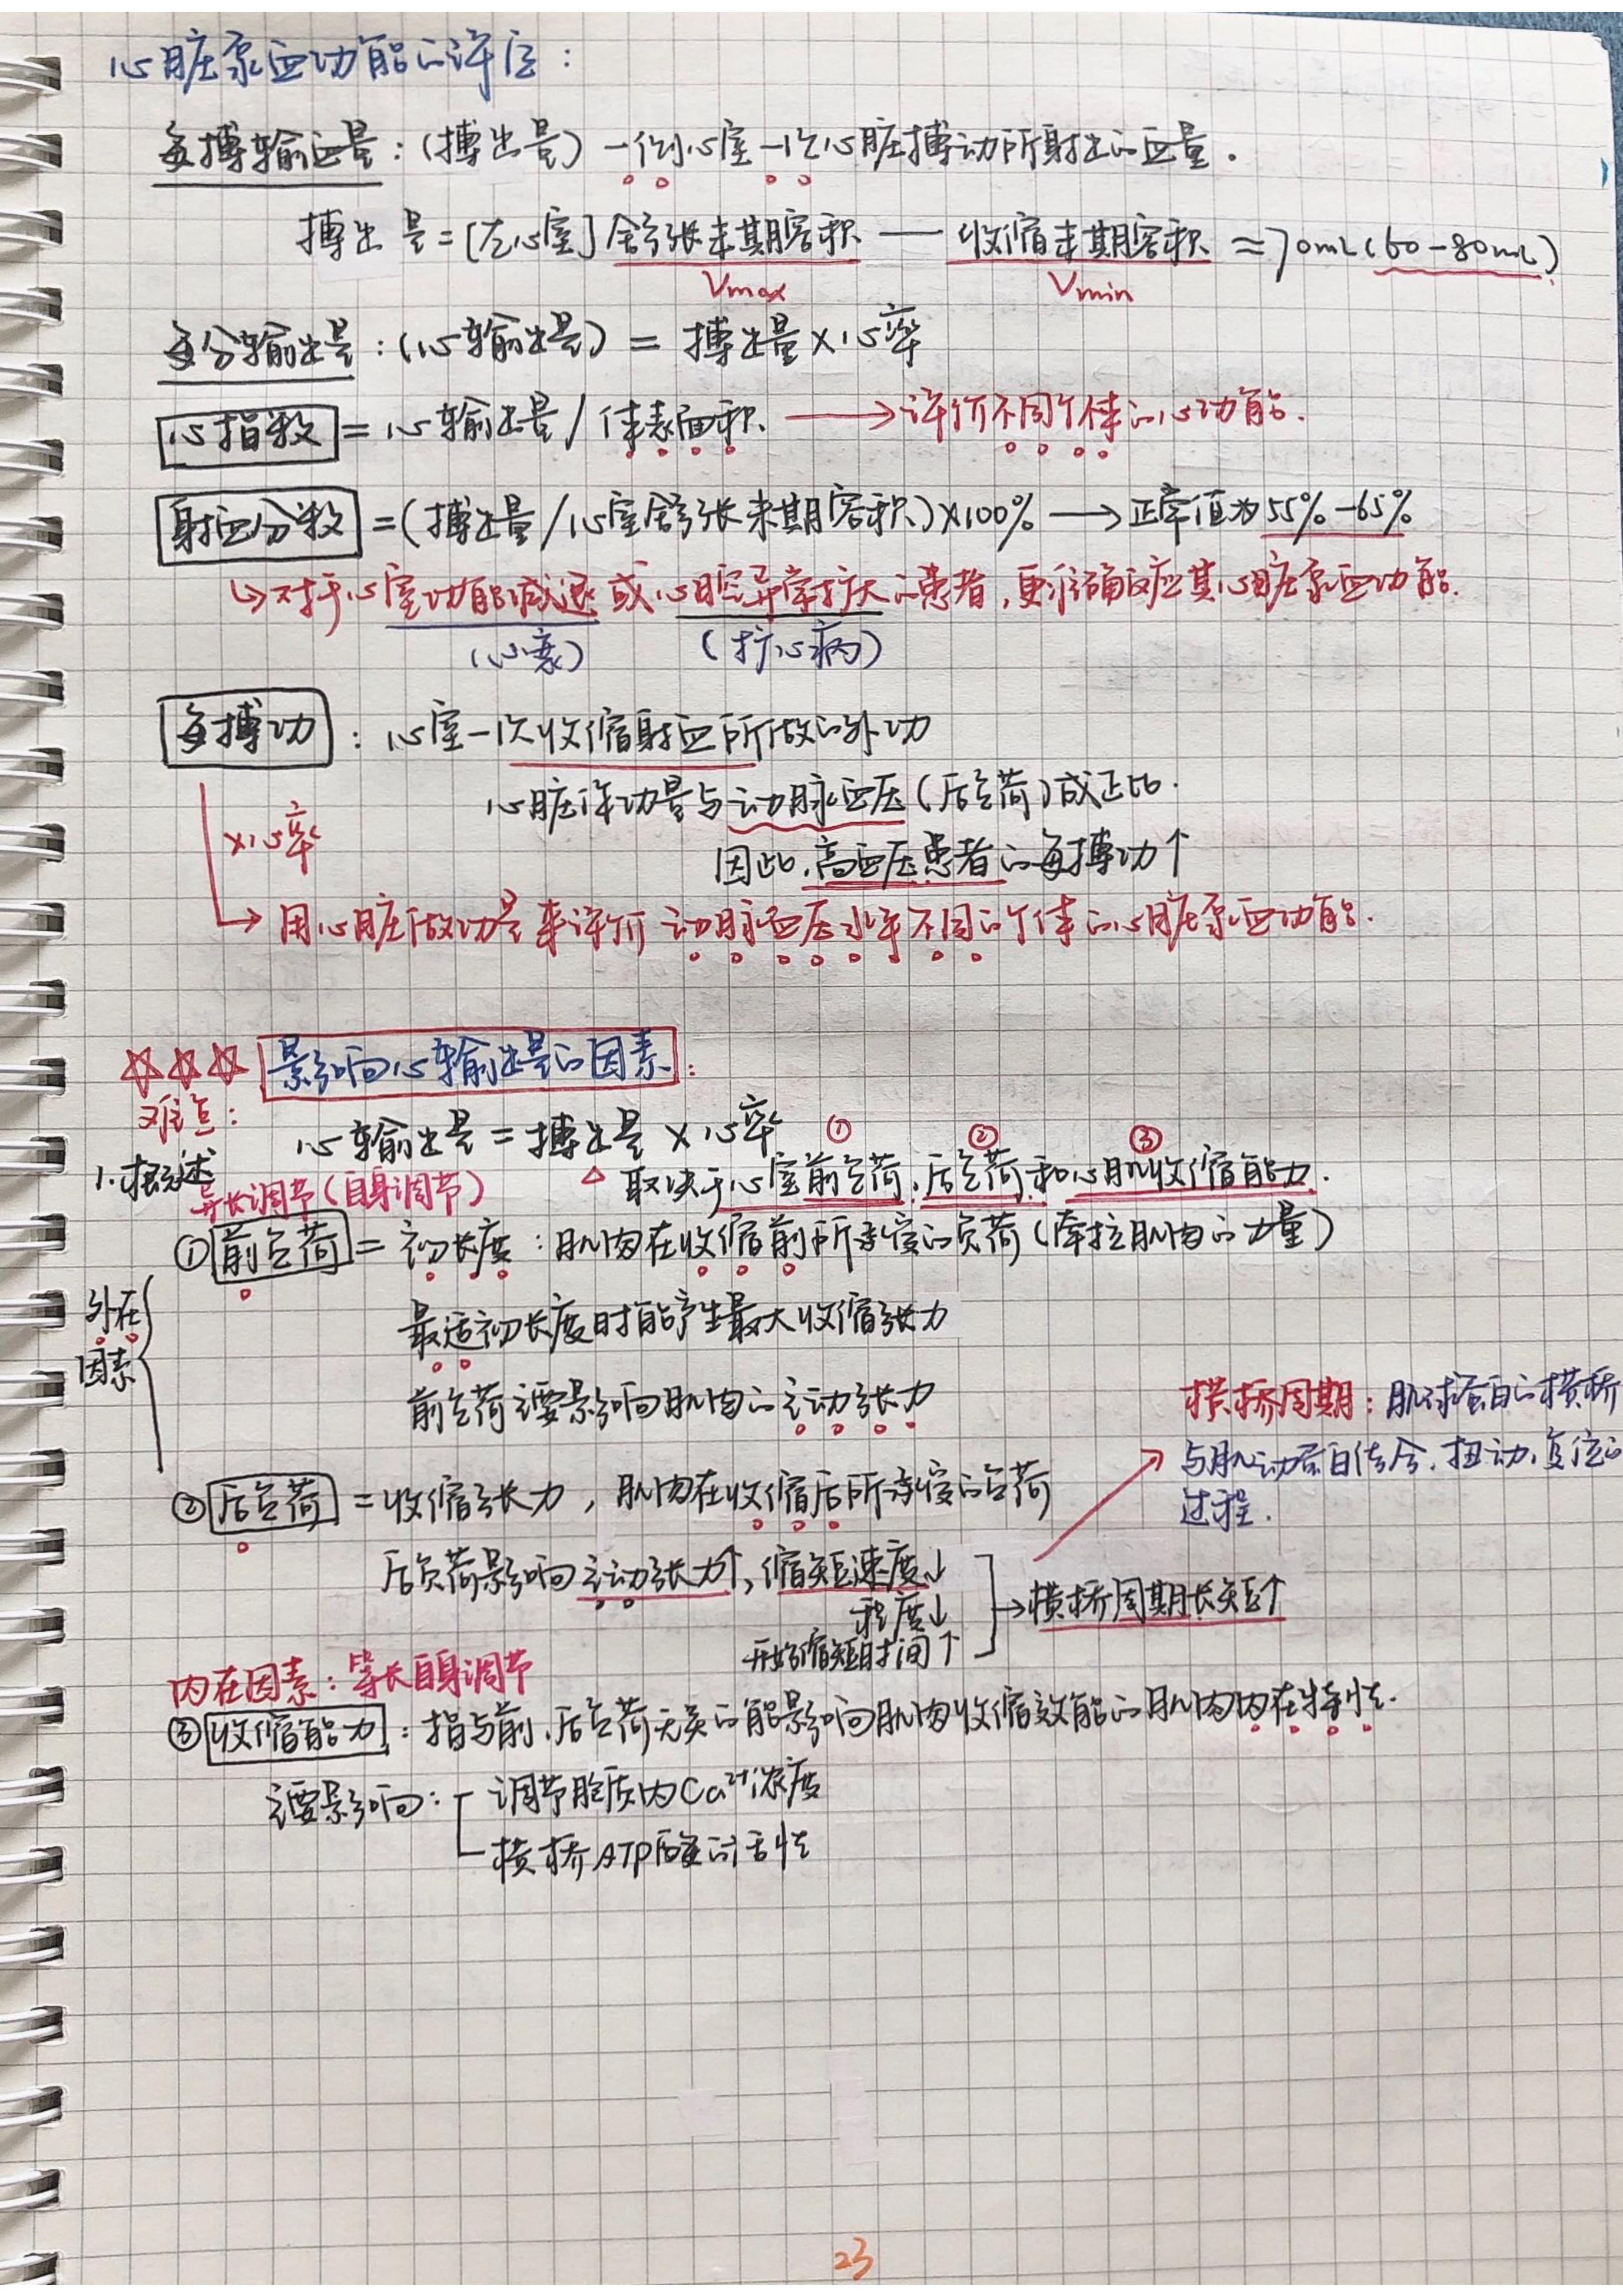 心脏泵血功能的评定:
每搏输血量:(搏出量)一侧心室一次心脏搏动所射出的血量.
搏出量=[左心室]舒张末期容积 — 收缩末期容积 ≈70mL(60-80mL)
Vmax Vmin
每分输出量:(心输出量) = 搏出量×心率
心指数 = 心输出量/体表面积 → 评价不同个体的心功能.
射血分数 =(搏出量/心室舒张末期容积)×100% → 正常值为55%-65%
↳对于心室功能减退或心腔异常扩大的患者,更准确反应其心脏泵血功能.
(心衰) (扩心病)
每搏功: 心室一次收缩射血所做的外功
心脏作功量与动脉血压(后负荷)成正比.
×心率
因此,高血压患者的每搏功↑
→ 用心脏做功量来评价动脉血压水平不同的个体的心脏泵血功能.
☆☆☆ 影响心输出量的因素:
难点:
心输出量=搏出量×心率 ① ② ③
1.概述
△ 取决于心室前负荷,后负荷和心肌收缩能力.
异长调节(自身调节)
①前负荷 = 初长度:肌肉在收缩前所承受的负荷(牵拉肌肉的力量)
外在因素
最适初长度时能产生最大收缩张力
前负荷主要影响肌肉的主动张力
横桥周期:肌球蛋白的横桥
与肌动蛋白结合,扭动,复位的
过程.
②后负荷 =收缩张力,肌肉在收缩后所承受的负荷
后负荷影响主动张力↑,缩短速度↓
程度↓
开始缩短时间↑
→横桥周期长短↑
内在因素:等长自身调节
③收缩能力:指与前,后负荷无关的能影响肌肉收缩效能的肌肉内在特性.
主要影响: 调节胞质内Ca²⁺浓度
横桥ATP酶的活性
23